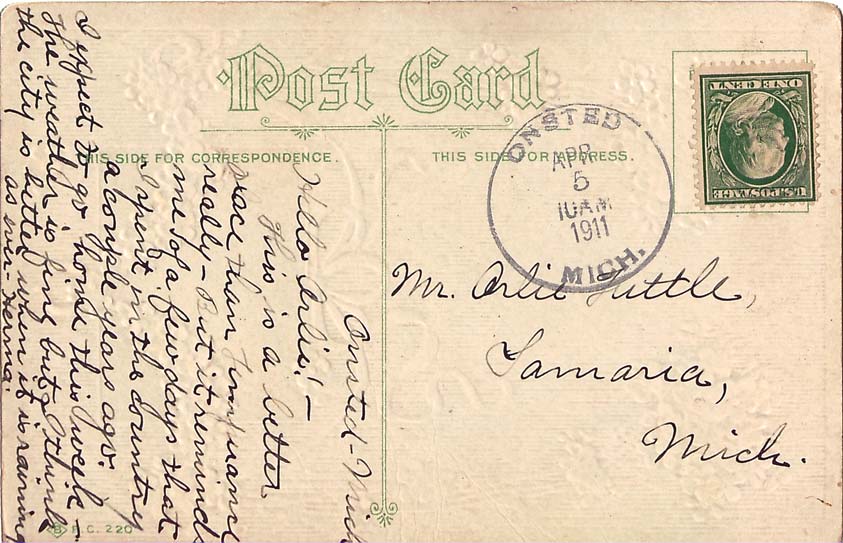 Post Card
THIS SIDE FOR CORRESPONDENCE.
THIS SIDE FOR ADDRESS.
ONSTED
APR
5
10 AM
1911
MICH.
U.S. POSTAGE
ONE CENT
Mr. Arlie Tuttle,
Samaria,
Mich.
Onsted - Mich
Hello Arlie! -
This is a better
place than Temperance
really - But it reminds
me of a few days that
I spent in the country
a couple years ago.
I expect to go home this week -
The weather is fine but I think
the city is better when it is raining
as ever - Norma.
B P.C. 220